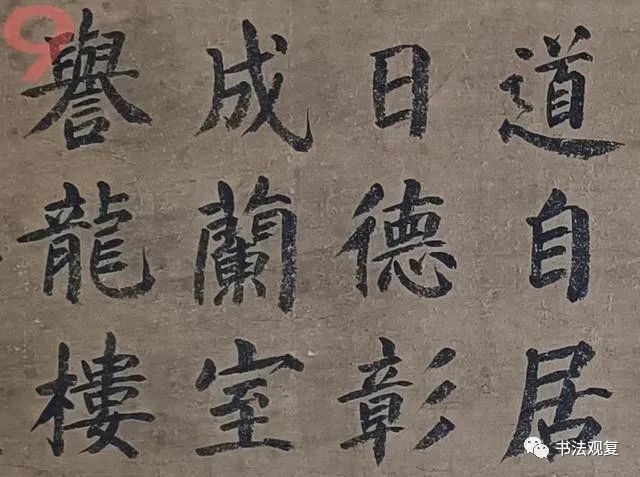 道自居
日德彰
成蘭室
譽龍樓
9
书法观复